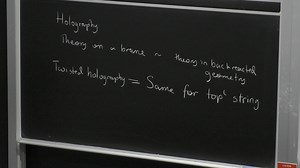 Holography
Theory on a brane ~ theory in backreacted
geometry
Twisted holography = Same for top'l string